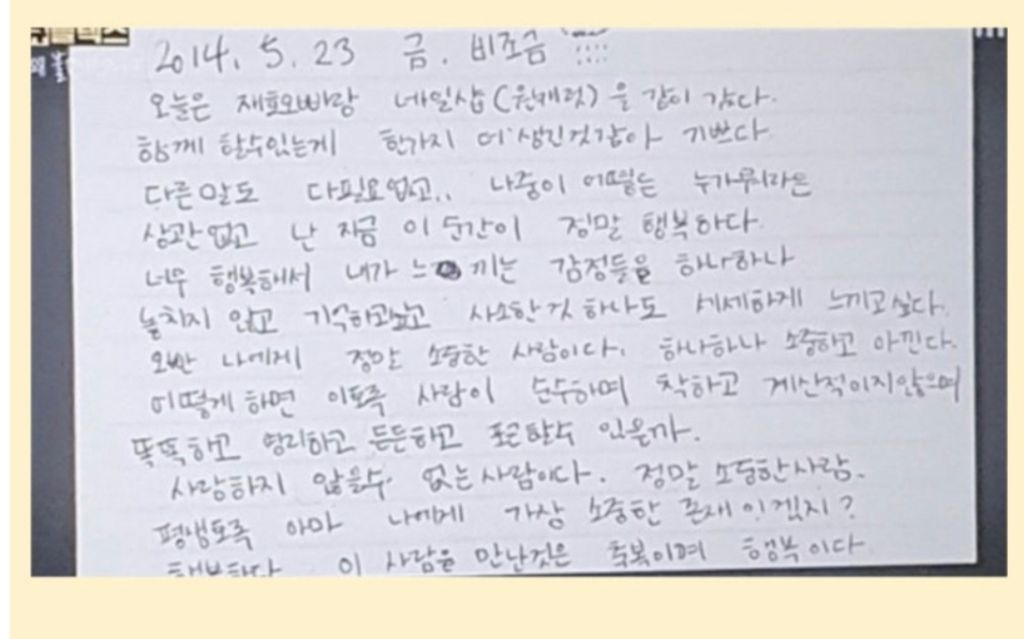 2014. 5. 23 금. 비조금
오늘은 재효오빠랑 네일샵(원캐럿)을 같이 갔다.
함께 할수있는게 한가지 더 생긴것같아 기쁘다
다른말도 다필요없고.. 나중이 어떻든 누가뭐라든
상관없고 난 지금 이 순간이 정말 행복하다.
너무 행복해서 내가 느끼는 감정들을 하나하나
놓치지 않고 기억하고싶고 사소한것 하나도 세세하게 느끼고싶다.
오빤 나에게 정말 소중한 사람이다. 하나하나 소중하고 아낀다.
어떻게하면 이토록 사람이 순수하며 착하고 계산적이지않으며
똑똑하고 영리하고 든든하고 포근할수 있을까.
사랑하지 않을수 없는사람이다. 정말 소중한사람.
평생토록 아마 나에게 가장 소중한 존재이겠지?
행복하다 이 사람을 만난것은 축복이며 행복이다